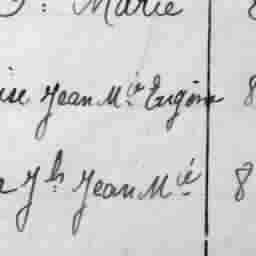 : Marie
ise Jean M.ie Eugène 8
Jh Jean M.ié 8